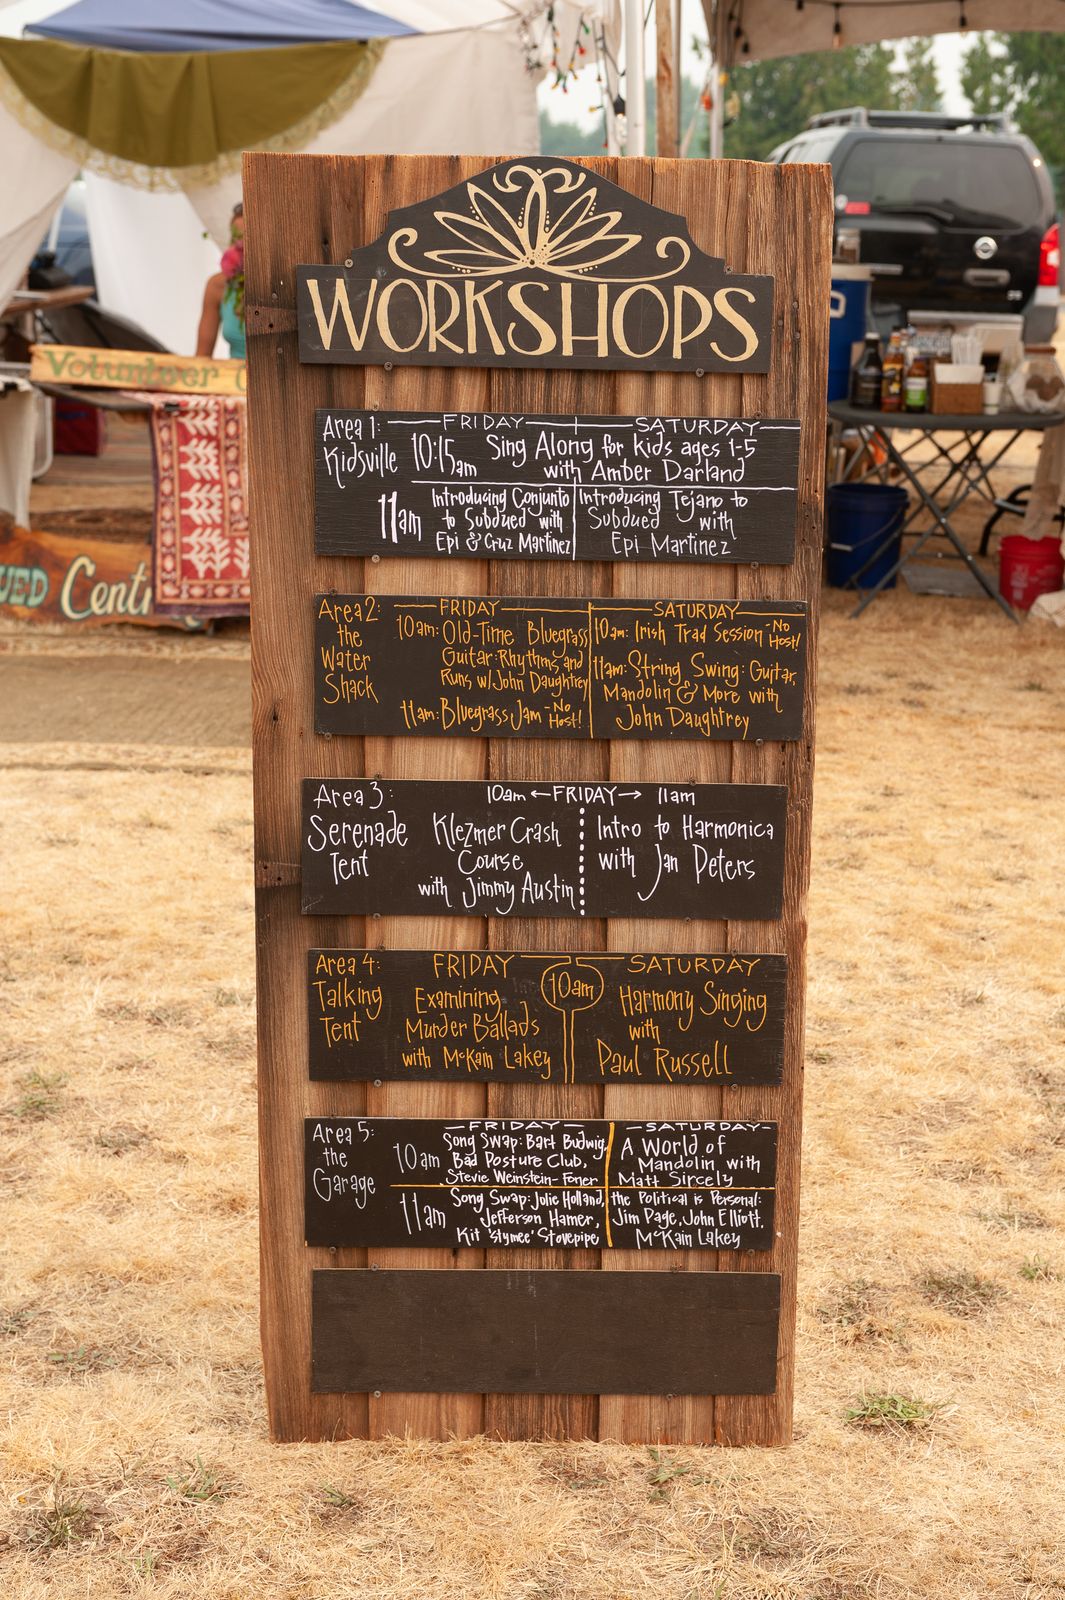 WORKSHOPS
Area 1:
Kidsville
FRIDAY
SATURDAY
10:15am
Sing Along for kids ages 1-5
with Amber Darland
11am
Introducing Conjunto
to Subdued with
Epi & Cruz Martinez
Introducing Tejano to
Subdued with
Epi Martinez
Area 2:
the
Water
Shack
FRIDAY
10am: Old-Time Bluegrass
Guitar: Rhythms and
Runs w/ John Daughtrey
11am: Bluegrass Jam - No
Host!
SATURDAY
10am: Irish Trad Session - No
Host!
11am: String Swing: Guitar,
Mandolin & More with
John Daughtrey
Area 3:
Serenade
Tent
10am ← FRIDAY → 11am
Klezmer Crash
Course
with Jimmy Austin
Intro to Harmonica
with Jan Peters
Area 4:
Talking
Tent
FRIDAY
10am
SATURDAY
Examining
Murder Ballads
with McKain Lakey
Harmony Singing
with
Paul Russell
Area 5:
the
Garage
FRIDAY
SATURDAY
10am
Song Swap: Bart Budwig,
Bad Posture Club,
Stevie Weinstein-Foner
A World of
Mandolin with
Matt Sircely
11am
Song Swap: Jolie Holland,
Jefferson Hamer,
Kit 'Stymee' Stovepipe
the Political is Personal:
Jim Page, John Elliott,
McKain Lakey
Volunteer